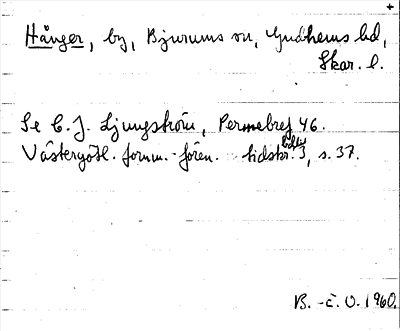 +
Hånger, by, Bjurums sn, Gudhems hd,
Skar. l.
Se C. J. Ljungström, Permebref 46.
Västergötl. fornm.-fören. tidskr. 3, s. 37.
B. -c. O. 1960.